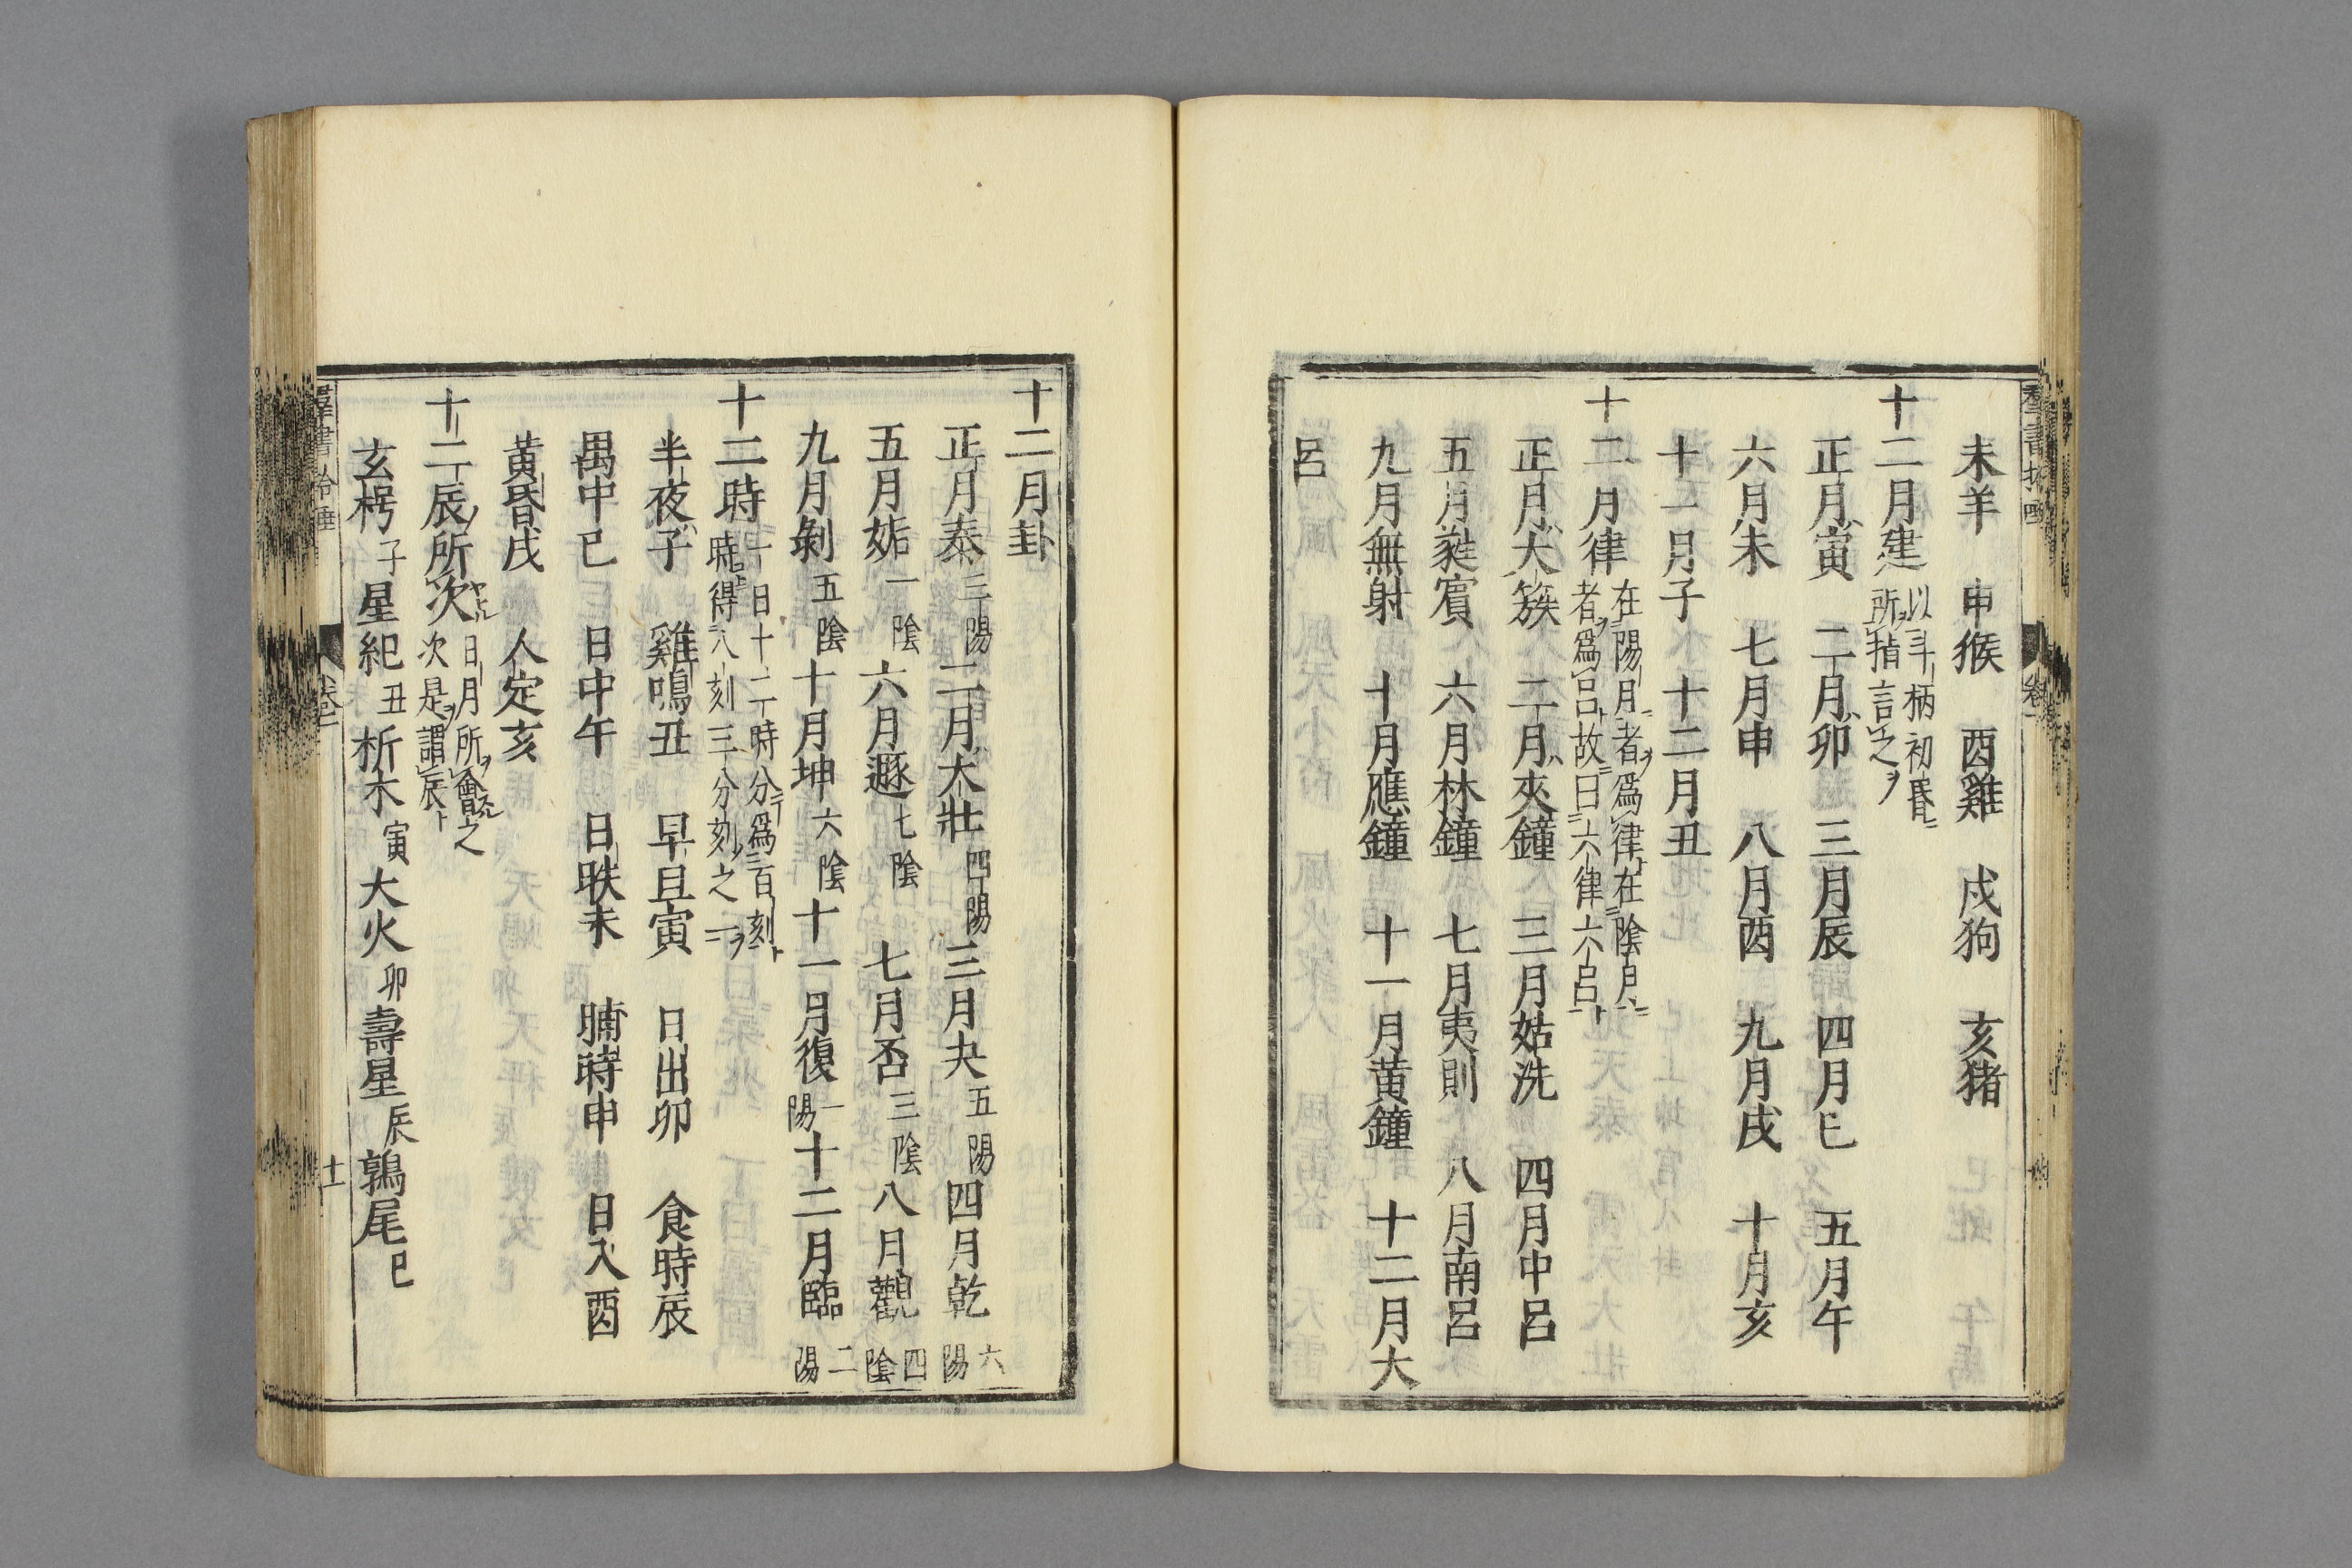 未羊　申猴　酉雞　戌狗　亥猪
十二月建 以斗柄初昏
所指言之
正月寅　二月卯　三月辰　四月巳　五月午
六月未　七月申　八月酉　九月戌　十月亥
十一月子　十二月丑
十二月律 在陽月者爲律在陰月
者爲呂故曰六律六呂
正月大簇　二月夾鐘　三月姑洗　四月中呂
五月蕤賓　六月林鐘　七月夷則　八月南呂
九月無射　十月應鐘　十一月黃鐘　十二月大
呂
十二月卦
正月泰三陽二月大壯四陽三月夬五陽四月乾六陽
五月姤一陰六月遯七陰七月否三陰八月觀四陰
九月剝五陰十月坤六陰十一月復一陽十二月臨二陽
十二時 一日十二時分爲百刻
時得八刻三分刻之一
半夜子　雞鳴丑　早旦寅　日出卯　食時辰
禺中巳　日中午　日昳未　晡時申　日入酉
黃昏戌　人定亥
十二辰所次 日月所會之
次是謂辰
玄枵子星紀丑析木寅大火卯壽星辰鶉尾巳
十一